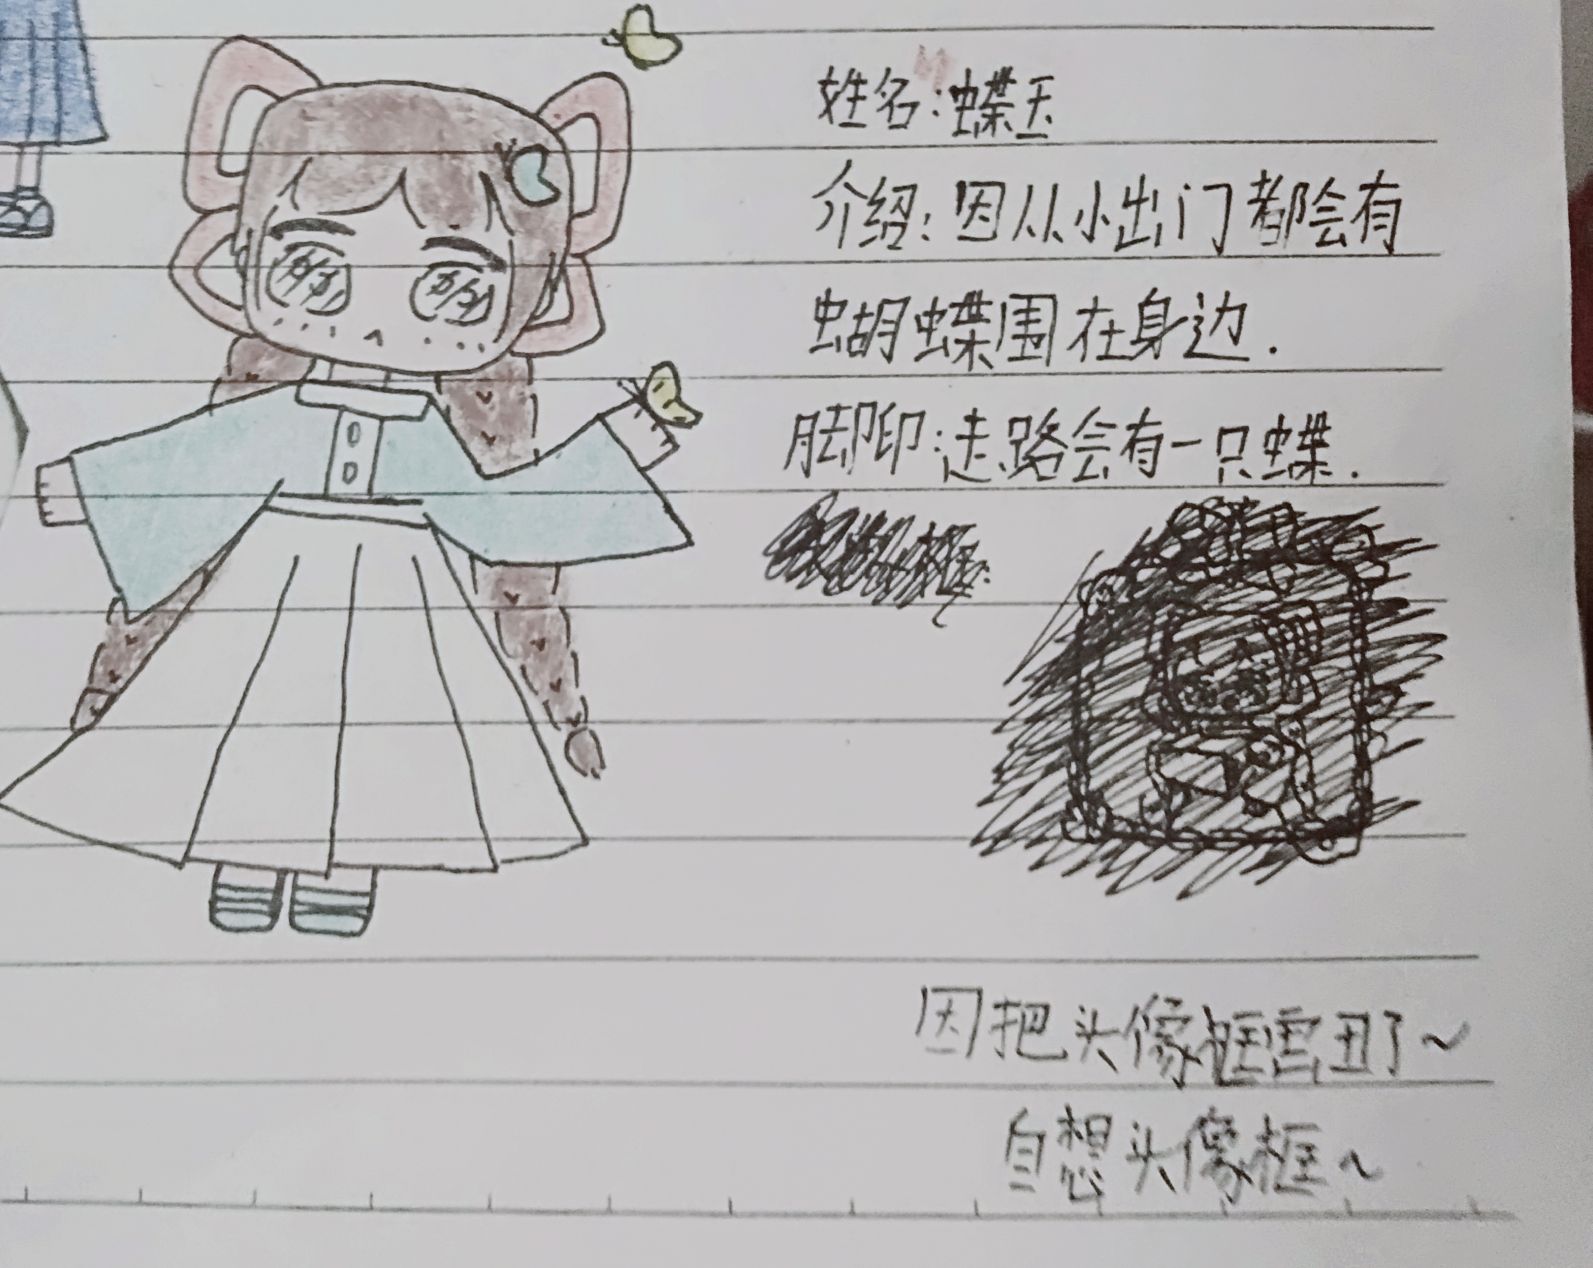 姓名:蝶玉
介绍:因从小出门都会有
蝴蝶围在身边.
脚印:走路会有一只蝶.
框:
因把头像框画丑了~
自想头像框~